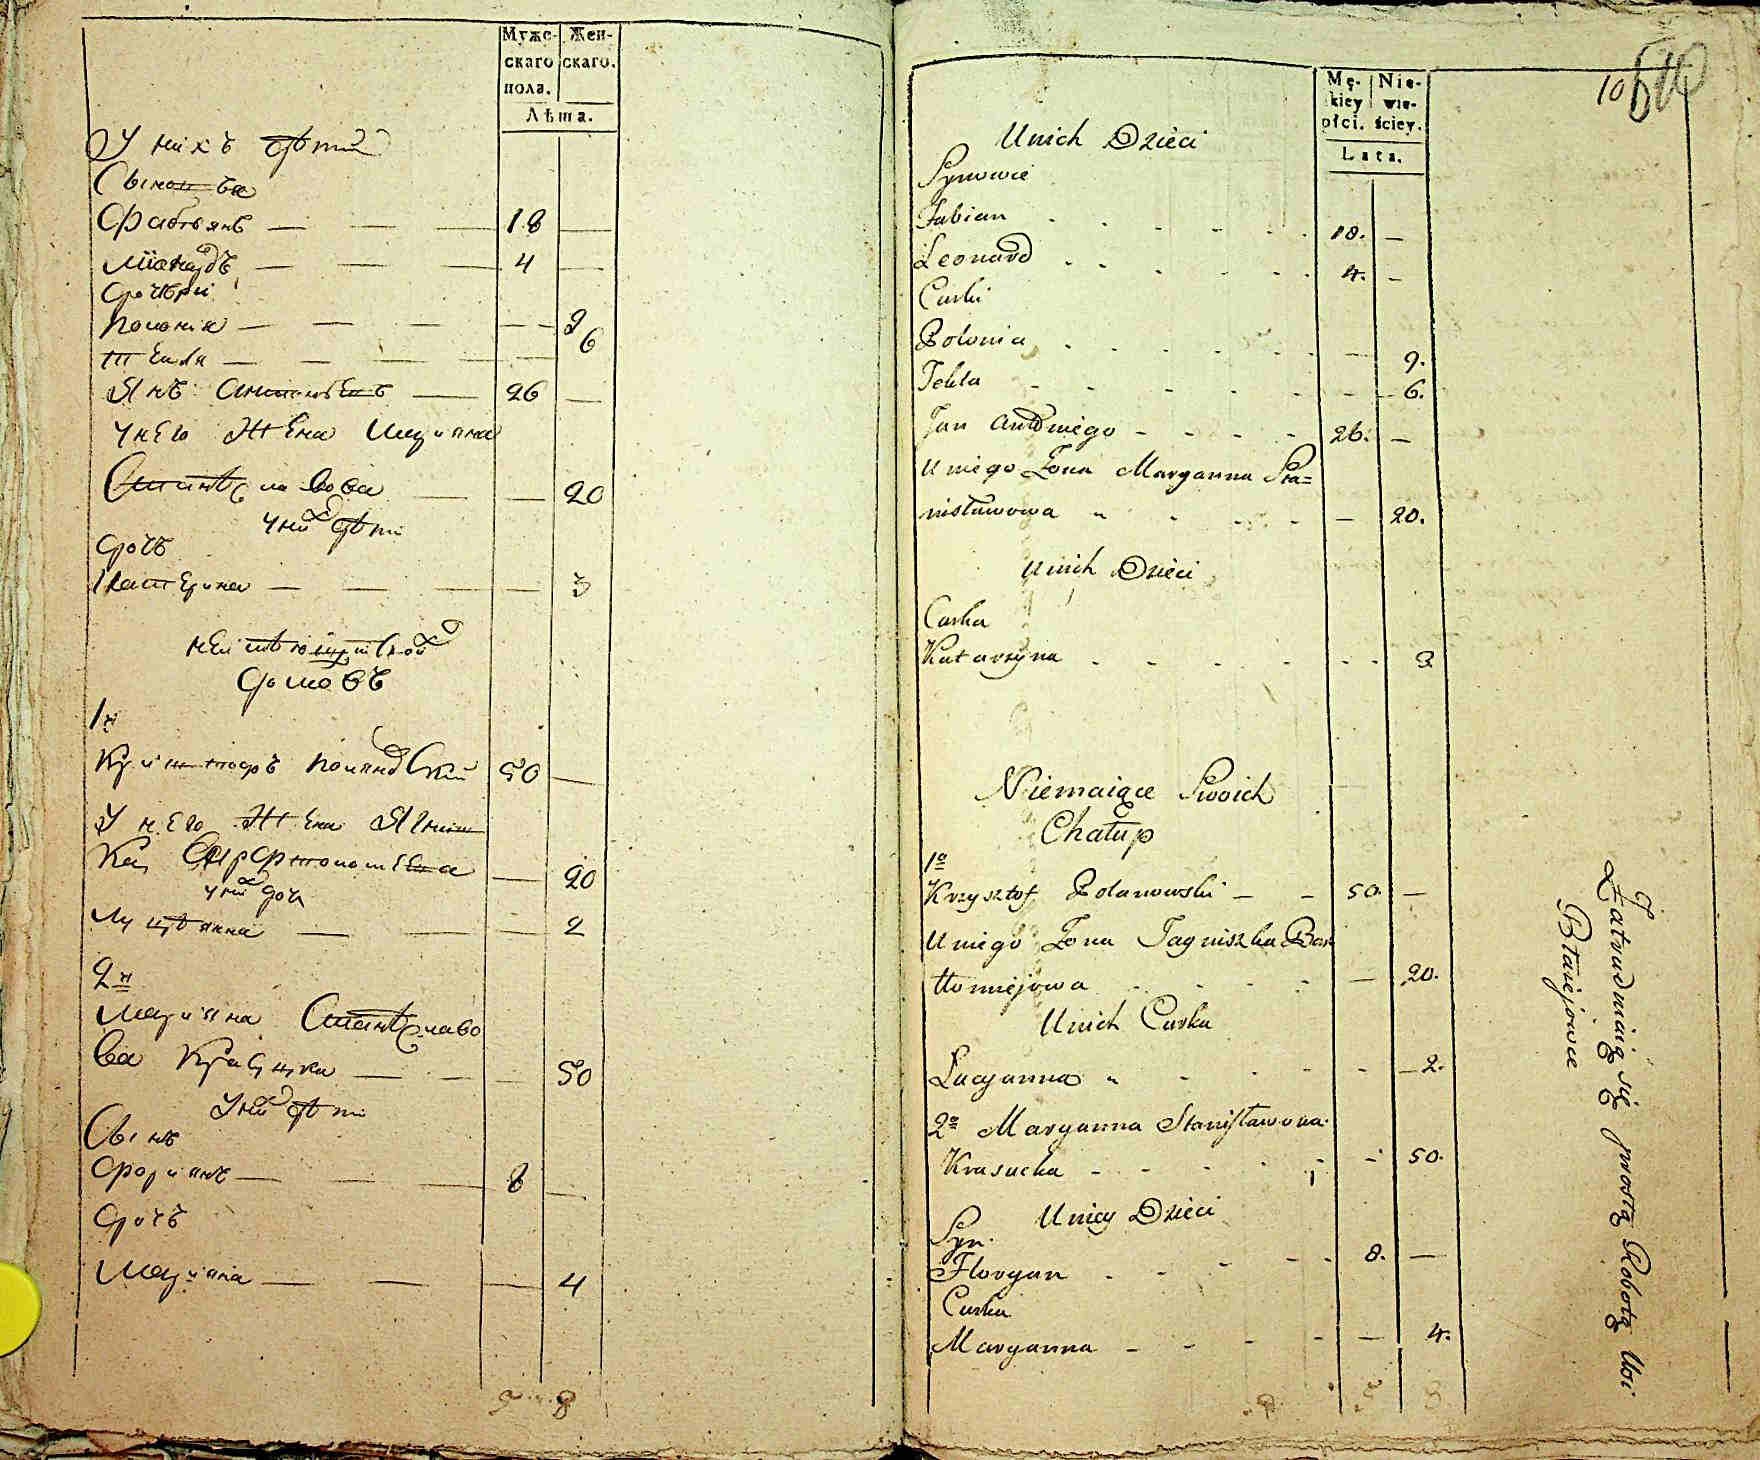 Мужс- Жен-
скаго скаго.
пола.
Лѣта.
У нихъ дѣти
Сыновья
Фабіянъ — — — 18 —
Ліонардъ — — — 4 —
Дочѣри
Полонія — — — — — 9
Текля — — — — — 6
Янъ Антоневъ — 26 —
у него Жена Маріяна
Станиславова — — 20
у них дѣти
Дочь
Катерина — — — — 3
неимѣющих своих
домовъ
1й
Криштофъ Поляновский 50 —
У него Жена Ягниш
ка Бартоломеева — 20
у них дочь
Луцыянна — — — 2
2я
Маріяна Станиславо
ва Красуцка — — — 50
У ней дѣти
Сынъ
Флоріянъ — — — 8 —
Дочь
Маріяна — — — 4
5 8
10
Mę- Nie-
kiey wie-
płci. ściey.
Lata.
Unich Dzieci
Synowie
Fabian 18. —
Leonard 4. —
Curki
Polonia — 9.
Tekla — 6.
Jan Antoniego - - - - 26. —
U niego Zona Maryanna Sta=
nisławowa — 20.
Unich Dzieci
Curka
Katarzyna 3
Niemaiące Swoich
Chałup
1o
Krzysztof Polanowski — - 50. —
U niego Zona Jagniszka Bar
tłomiejowa — 20.
Unich Curka
Lucyanna — 2.
2o Maryanna Stanisławowa
Krasucka - - - - 50.
Uniey Dzieci
Syn.
Floryan 8. —
Curka
Maryanna - - - - — 4.
5 8
Zatrudniaią się prostą Robotą
Błaiejowce